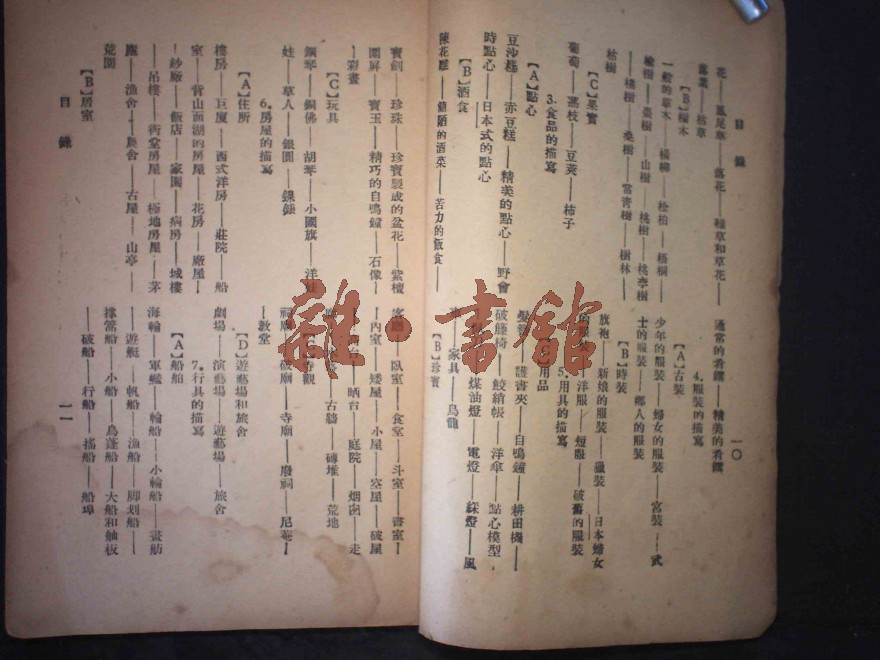 目錄
一〇
花——鳳尾草——落花——種草和草花——
落葉——枯草
【B】樹木
一般的草木——楊柳——松柏——梧桐
榆樹——棗樹——山樹——桃樹——桃李樹
——橘樹——桑樹——常青樹——樹林——
枯樹
【C】果實
葡萄——荔枝——豆莢——柿子
3. 食品的描寫
【A】點心
豆沙糕——赤豆糕——精美的點心——野會
時點心——日本式的點心
【B】酒食
陳花雕——簡陋的酒菜——苦力的飯食——
通常的肴饌——精美的肴饌
4. 服裝的描寫
【A】古裝
少年的服裝——婦女的服裝——宮裝——武
士的服裝——鄉人的服裝
【B】時裝
旗袍——新娘的服裝——獵裝——日本婦女
的服裝——洋服——短服——破舊的服裝
5. 用具的描寫
用品
髮簪——護書夾——自鳴鐘——耕田機——
破籐椅——鮫綃帳——洋傘——點心模型
——煤油燈——電燈——綵燈——風
車——家具——烏龍
【B】珍寶
寶劍——珍珠——珍寶製成的盆花——紫檀
圍屏——寶玉——精巧的自鳴鐘——石像——
彩畫
【C】玩具
鋼琴——銅佛——胡琴——小國旗——洋娃
娃——草人——銀圓——銀錶
6. 房屋的描寫
【A】住所
樓房——巨廈——西式洋房——莊院——船
室——背山面湖的房屋——花房——廠屋——
紗廠——飯店——家園——病房——城樓
——吊樓——衖堂房屋——極地房屋——茅
廬——漁舍——農舍——古屋——山亭——
荒園
【B】居室
客廳——臥室——食室——斗室——書室——
內室——矮屋——小屋——空屋——破屋
晒台——庭院——烟囪——走
古牆——磚堆——荒地
祠廟——破廟——寺廟——廢祠——尼菴——
教堂
【D】遊藝場和旅舍
劇場——演藝場——遊藝場——旅舍
7. 行具的描寫
【A】船舶
海輪——軍艦——輪船——小輪船——畫舫
——遊艇——帆船——漁船——脚划船——
撐篙船——小船——烏蓬船——大船和舢板
——破船——行船——搖船——船埠
目錄
一一
雜·書館